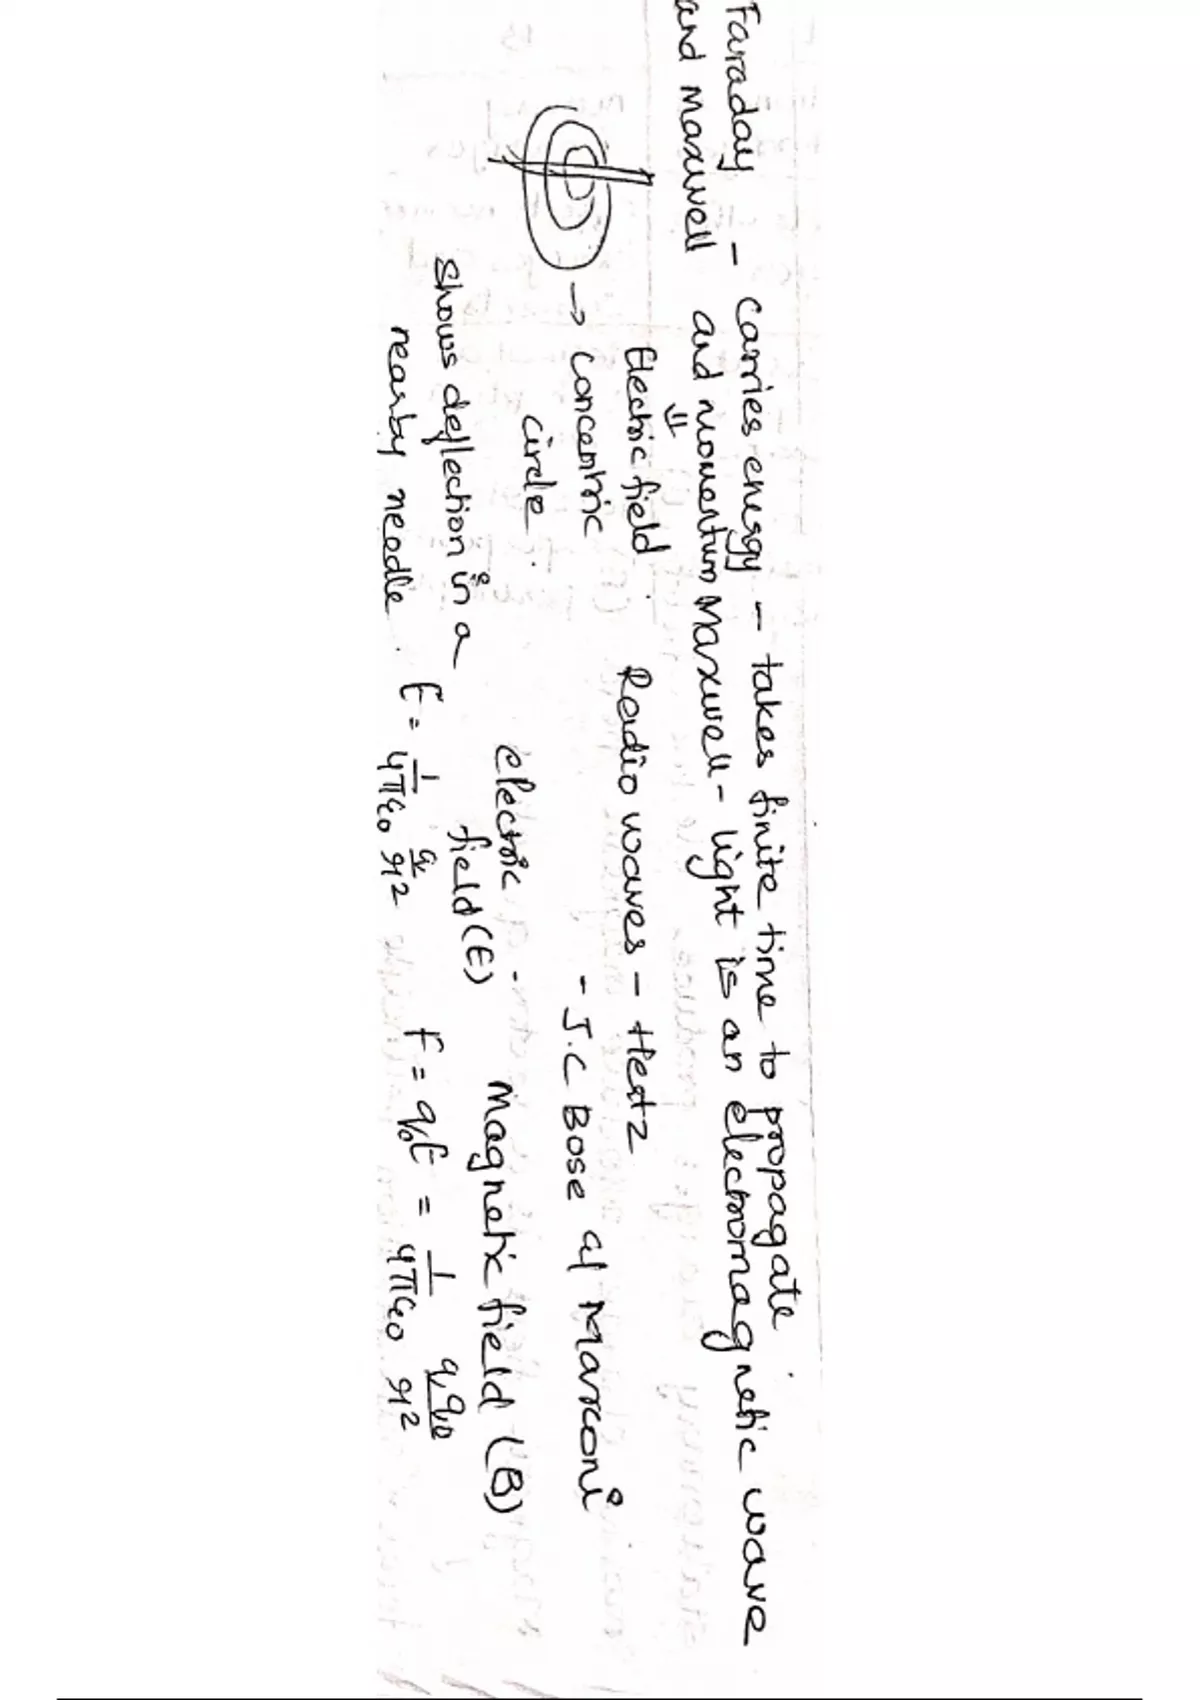 Faraday - carries energy - takes finite time to propagate
and Maxwell and momentum Maxwell - light is an electromagnetic wave
⇓
Electric field Radio waves - Hertz
→ concentric - J.C Bose at Marconi
circle.
electric Magnetic field (B)
field (E)
shows deflection in a
nearby needle. E = 1/4πε0 q/r2 F = q0E = 1/4πε0 qq0/r2